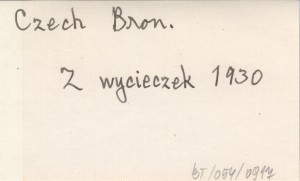 Czech Bron.
Z wycieczek 1930
BT/054/0917